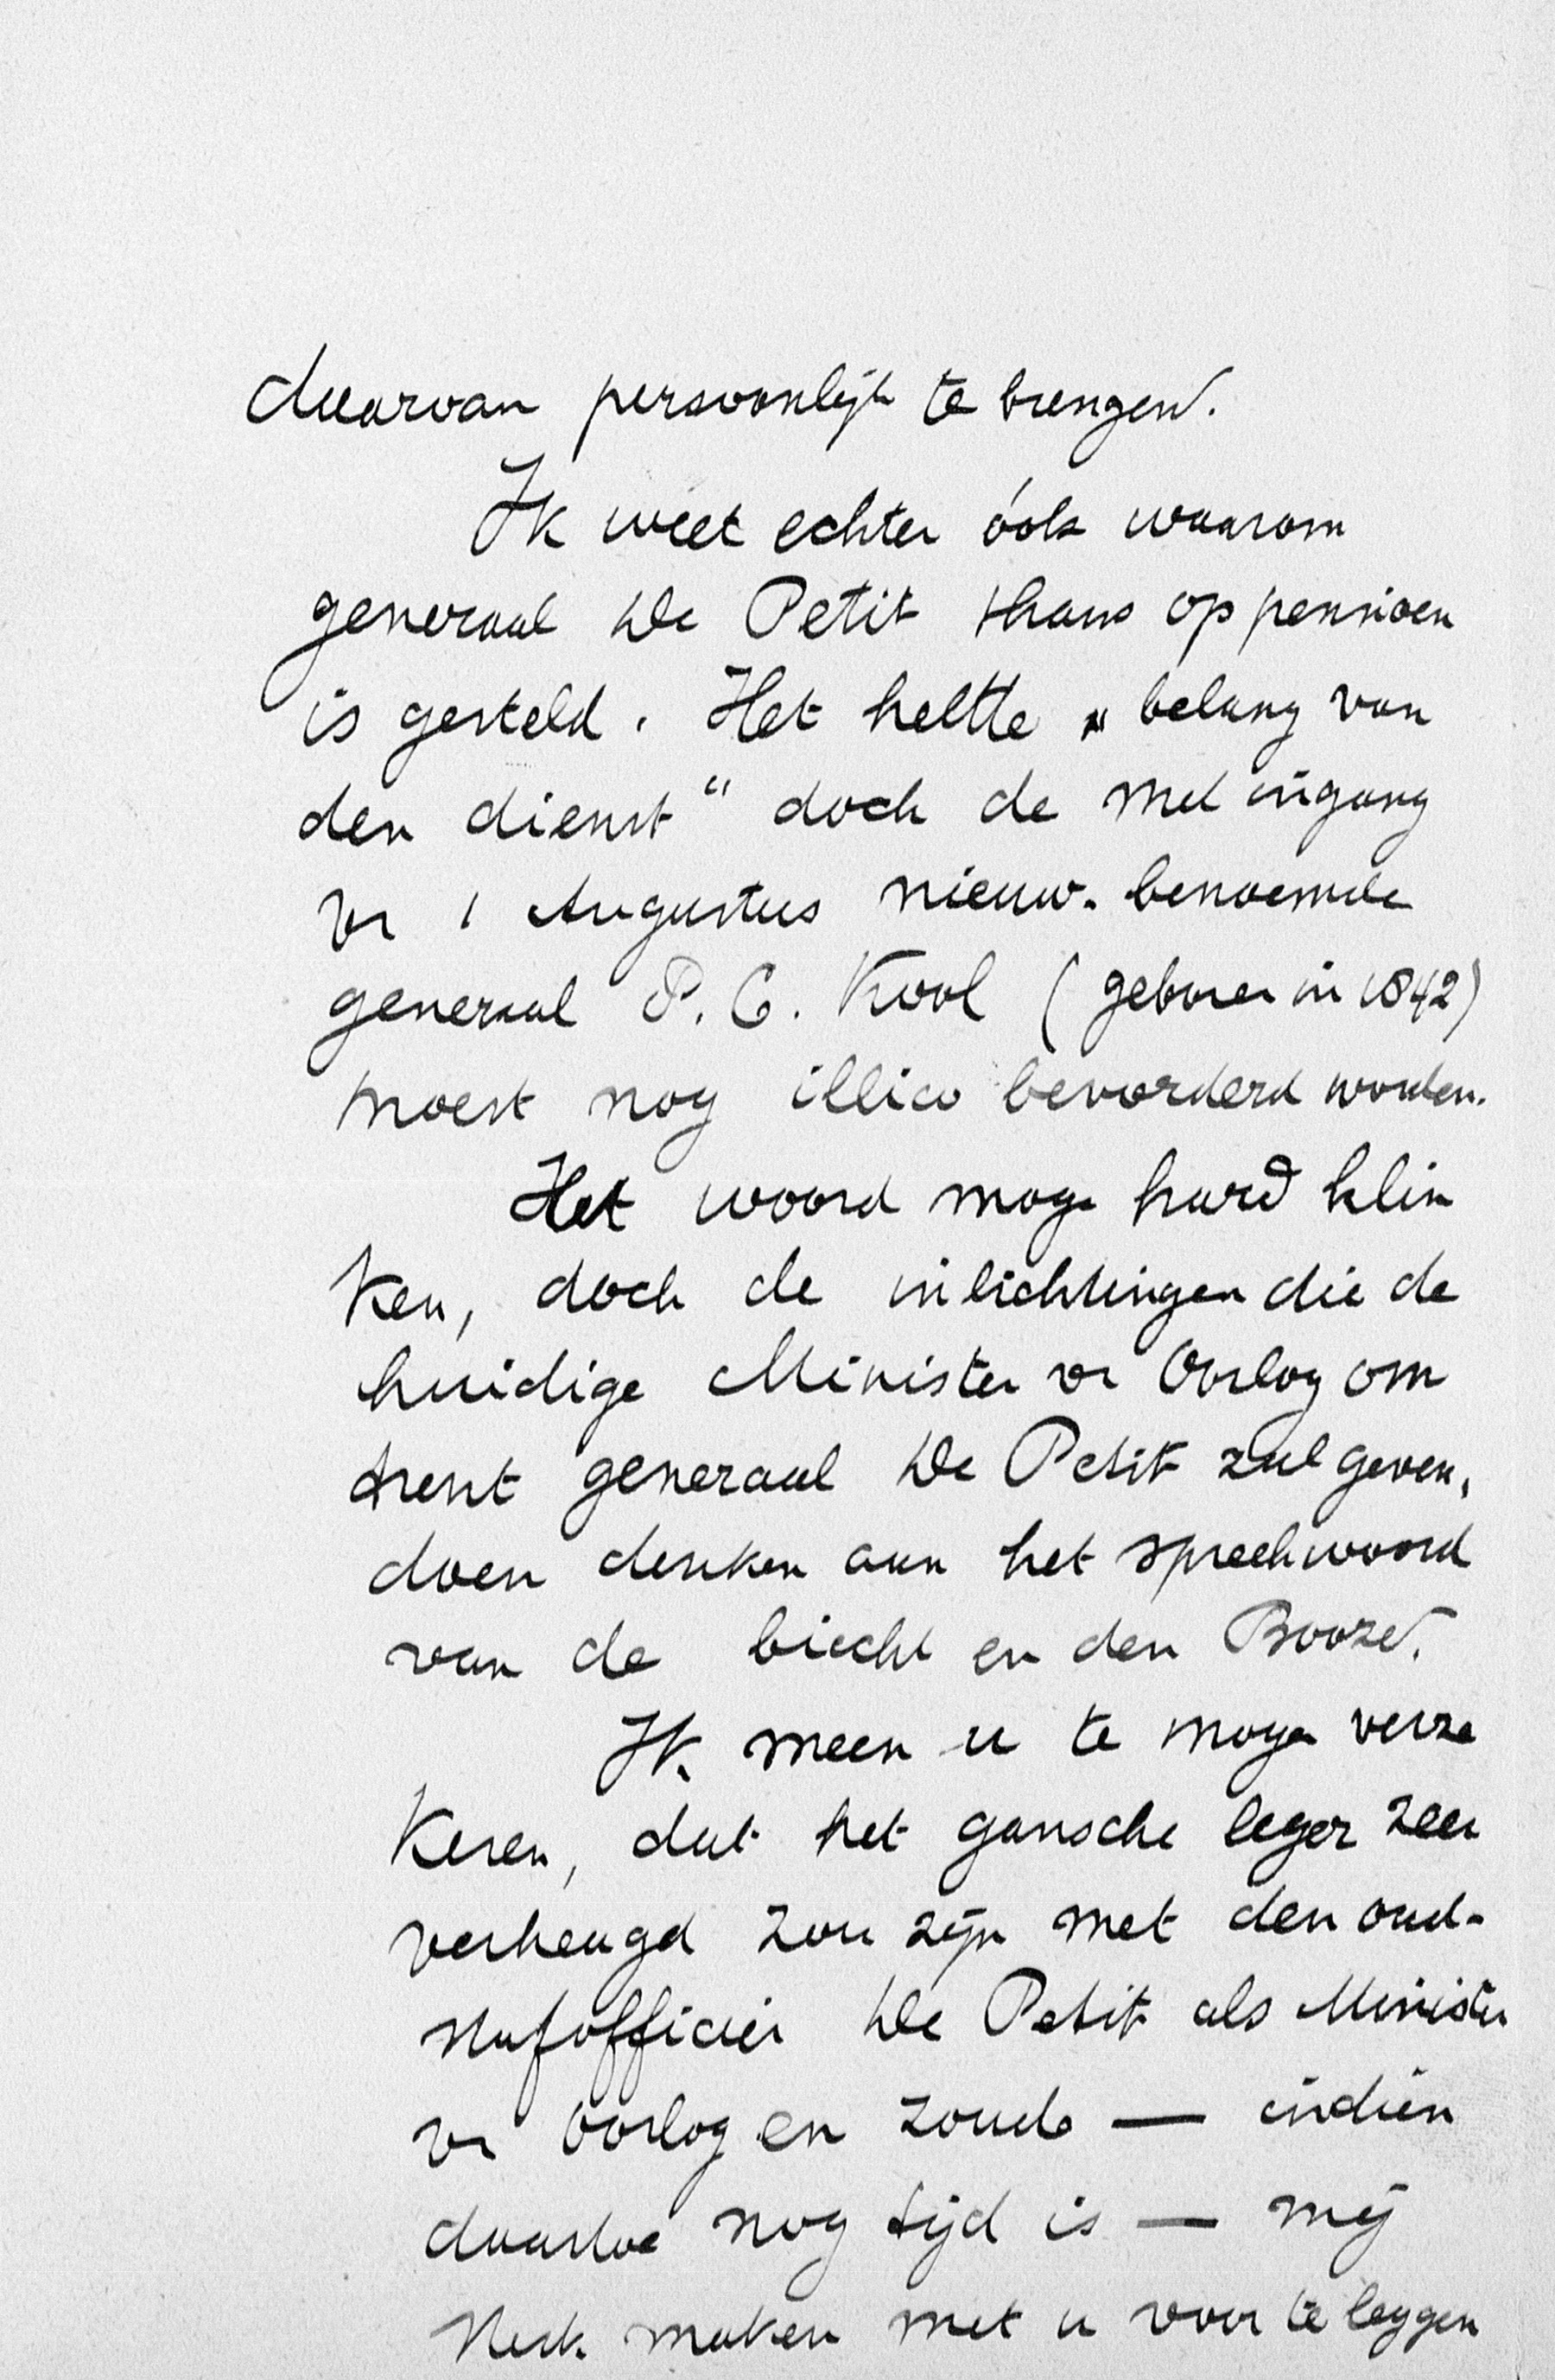 daarvan persoonlijk te brengen.
Ik weet echter óok waarom
generaal De Petit thans op pensioen
is gesteld. Het heette „belang van
den dienst“ doch de met ingang
vn 1 Augustus nieuw-benoemde
generaal P. C. Kool (geboren in 1842)
moest nog illico bevorderd worden.
Het woord moge hard klin
ken, doch de inlichtingen die de
huidige Minister vn Oorlog om
trent generaal De Petit zal geven,
doen denken aan het spreekwoord
van de biecht en den Booze.
Ik meen u te mogen verze
keren, dat het gansche leger zeer
verheugd zou zijn met den oud-
stafofficier De Petit als Minister
vn Oorlog en zoude — indien
daartoe nog tijd is — mij
sterk maken met u voor te leggen